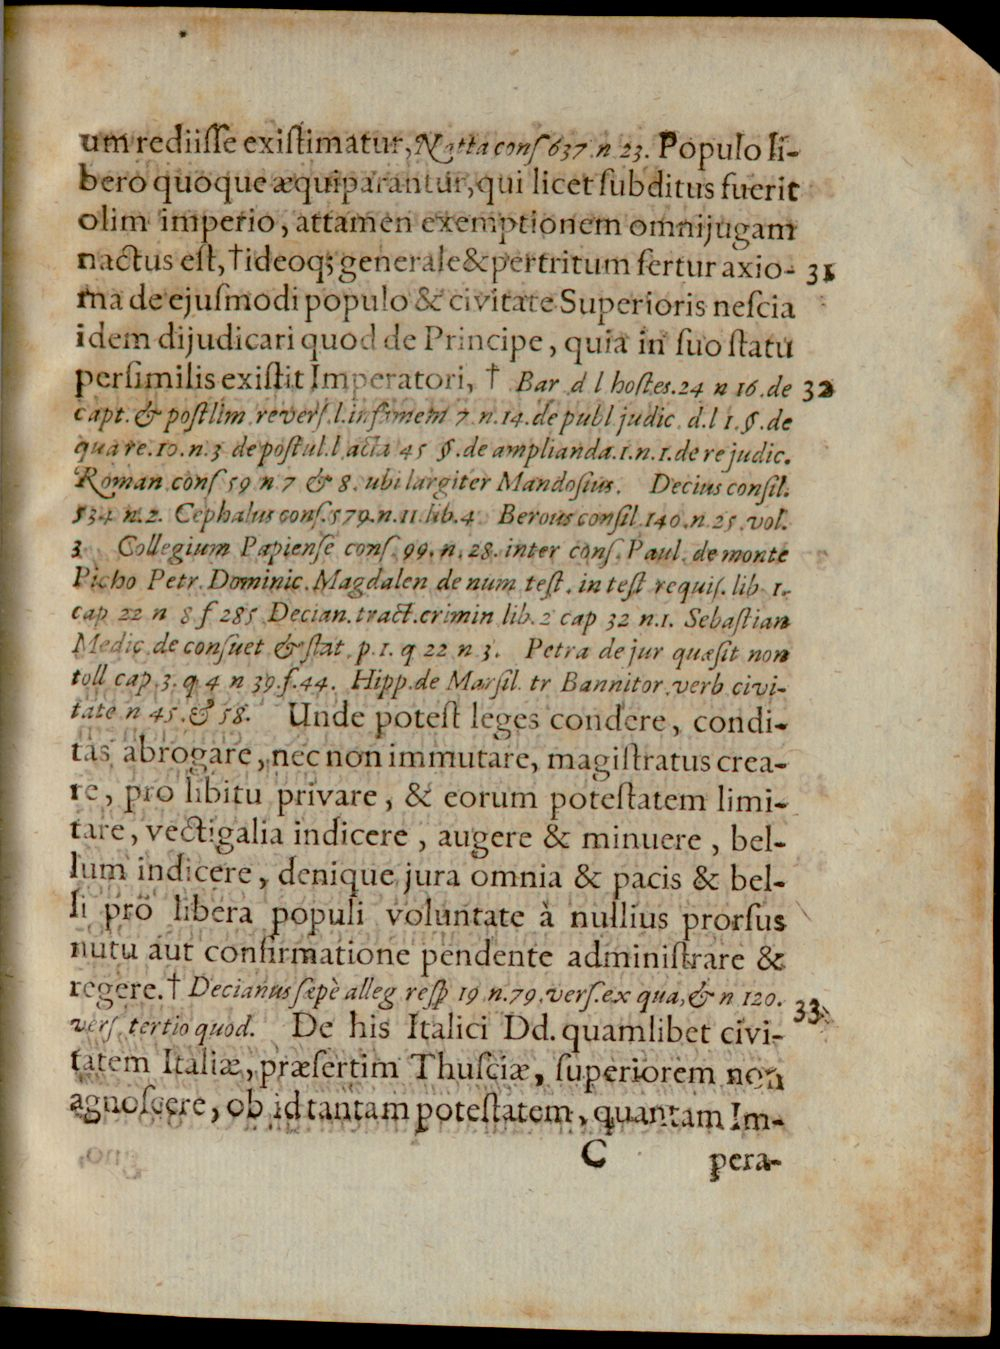 um rediisse existimatur, Natta cons 637. n 23. Populo li-
bero quoque æquiparantur, qui licet subditus fuerit
olim imperio, attamen exemptionem omnijugam
nactus est, † ideoq; generale & pertritum fertur axio- 31
ma de ejusmodi populo & civitate Superioris nescia
idem dijudicari quod de Principe, quia in suo statu
persimilis existit Imperatori, † Bar d l hostes. 24 n 16. de 32
capt. & postlim revers. l. infamem 7. n. 14. de publ judic. d. l 1. §. de
qua re. 10. n. 3 de postul. l acta 45 §. de amplianda. 1. n. 1. de re judic.
Roman cons 59 n 7 & 8. ubi largiter Mandosius. Decius consil.
534 n. 2. Cephalus cons. 579. n. 11. lib. 4. Berous consil. 140. n. 25. vol.
3 Collegium Papiense cons. 99. n. 28. inter cons. Paul. de monte
Picho Petr. Dominic. Magdalen de num test. in test requis. lib 1.
cap 22 n 8 f 285 Decian. tract. crimin lib. 2 cap 32 n. 1. Sebastian
Medic de consuet & stat. p. 1. q 22 n 3. Petra de jur quæsit non
toll cap. 3. q 4 n 39. f. 44. Hipp. de Marsil. tr Bannitor. verb civi-
tate n 45. & 58. Unde potest leges condere, condi-
tas abrogare, nec non immutare, magistratus crea-
re, pro libitu privare, & eorum potestatem limi-
tare, vectigalia indicere, augere & minuere, bel-
lum indicere, denique jura omnia & pacis & bel-
li pro libera populi voluntate à nullius prorsus
nutu aut confirmatione pendente administrare &
regere. † Decianus sæpè alleg resp 19 n. 79. vers. ex qua, & n 120. 33
vers tertio quod. De his Italici Dd. quamlibet civi-
tatem Italiæ, præsertim Thusciæ, superiorem non
agnoscere, ob id tantam potestatem, quantam Im-
C pera-